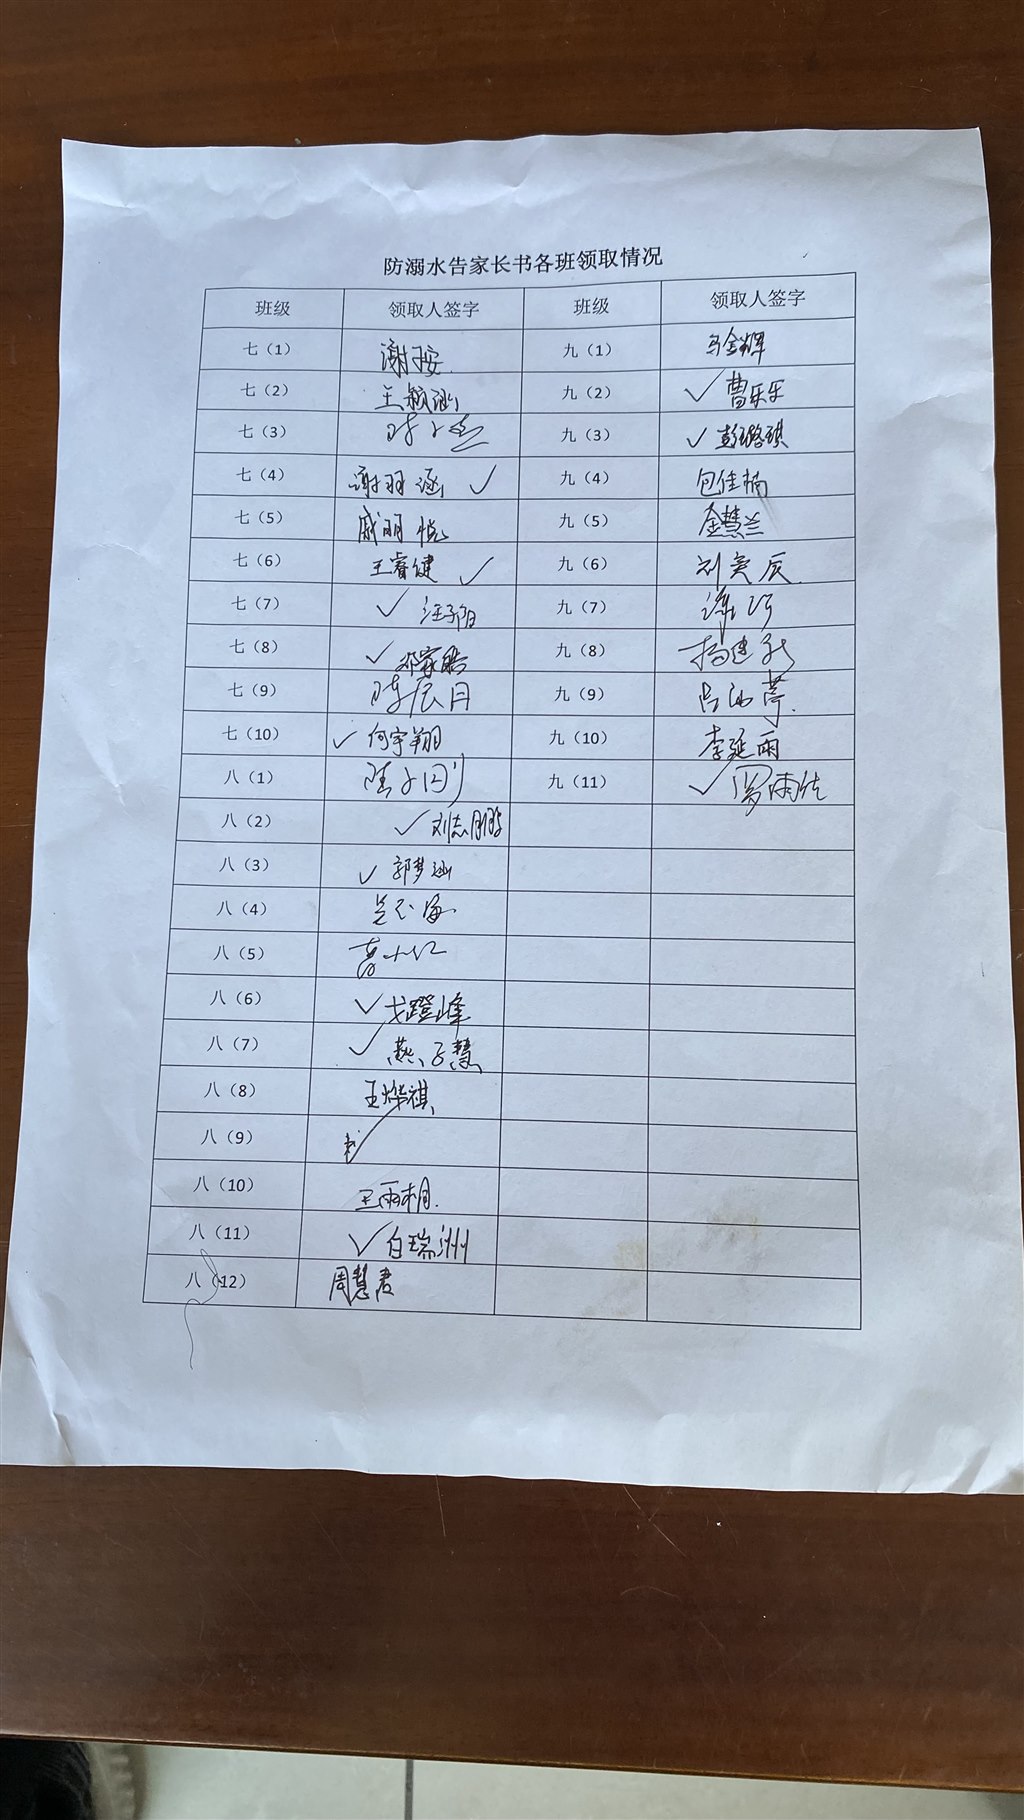 防溺水告家长书各班领取情况
班级 领取人签字 班级 领取人签字
七（1） 谢 九（1） 马金辉
七（2） 王颖涵 九（2） ✓ 曹乐乐
七（3） 九（3） ✓ 彭璐琪
七（4） 谢羽涵 ✓ 九（4） 包佳楠
七（5） 戚玥悦 九（5） 金慧兰
七（6） 王睿健 ✓ 九（6） 刘奕辰
七（7） ✓ 汪子阳 九（7）
七（8） ✓ 邓家皓 九（8） 杨建
七（9） 陈辰月 九（9） 吕
七（10） ✓ 何宇翔 九（10） 李延雨
八（1） 陆子 九（11） ✓ 罗雨佳
八（2） ✓ 刘志鹏
八（3） ✓ 郭梦涵
八（4）
八（5）
八（6） ✓ 戈蹬峰
八（7） ✓ 燕子慧
八（8） 王烨祺
八（9）
八（10） 王雨桐
八（11） ✓ 白瑞洲
八（12） 周慧君